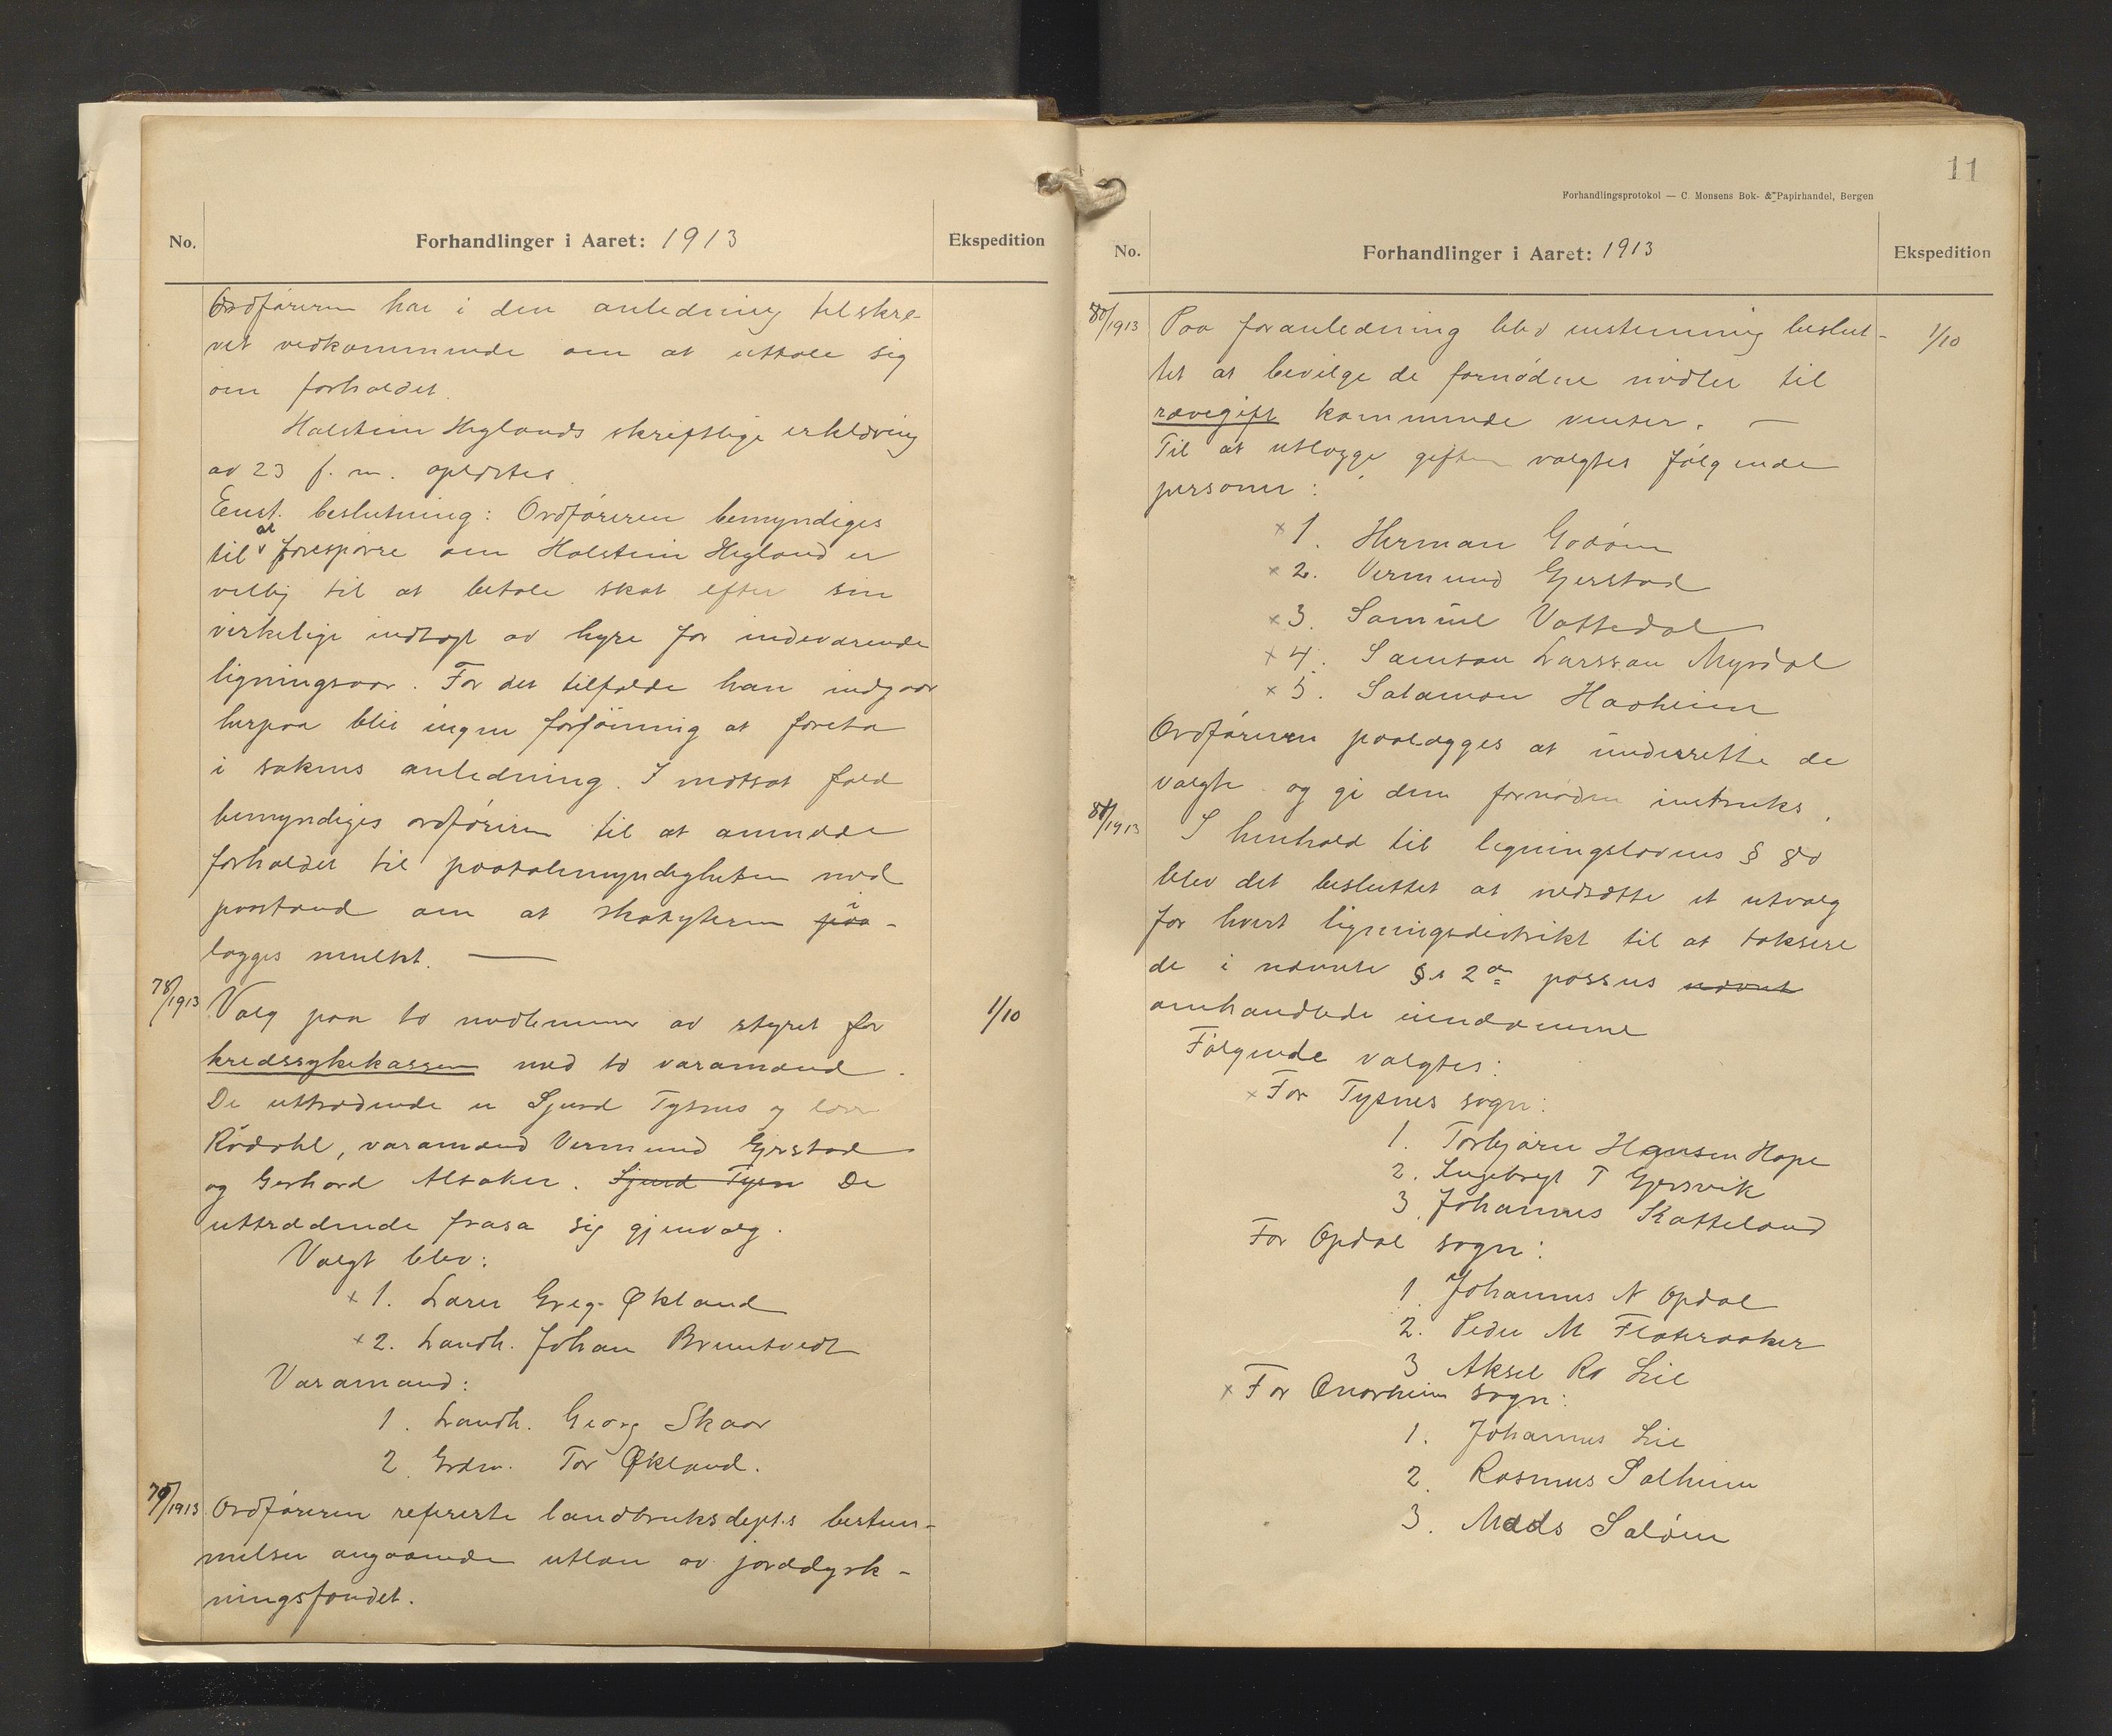 No. Forhandlinger i Aaret: 1913 Ekspedition
Ordføreren har i den anledning tilskre-
vet vedkommende om at uttale sig
om forholdet.
Halstein Heglands skriftlige erklæring
av 23 f. m. oplæstes.
Enst. beslutning: Ordføreren bemyndiges
til at forespørre om Halstein Hegland er
villig til at betale skat efter sin
virkelige indtægt av hyre for indeværende
ligningsaar. For det tilfælde han indgaar
herpaa blir ingen forføining at foreta
i sakens anledning. I motsat fald
bemyndiges ordføreren til at anmelde
forholdet til paatalemyndigheten med
paastand om at skatyteren paa i-
lægges mulkt. —
78/1913 Valg paa to medlemmer av styret for 1/10
kredssykekassen med to varamænd.
De uttrædende er Sjurd Tysnes og
Rødahl, varamænd Vermund Gjerstad
og Gerhard Alsaker. Sjurd Tysn De
uttrædende frasa sig gjenvalg.
Valgt blev:
x 1. Lærer Greg. Økland
x 2. Landh. Johan Bruntvedt
Varamænd:
1. Landh. Georg Skaar
2. Grdm. Tor Økland.
79/1913 Ordføreren refererte landbruksdept.s bestem-
melser angaaende utlaan av jorddyrk-
ningsfondet.
11
Forhandlingsprotokol — C. Monsens Bok- & Papirhandel, Bergen
No. Forhandlinger i Aaret: 1913 Ekspedition
80/1913 Paa foranledning blev enstemmig beslut- 1/10
tet at bevilge de fornødne midler til
rævegift kommende vinter. —
Til at utlægge giften valgtes følgende
personer:
x 1. Herman Godøen
x 2. Vermund Gjerstad
x 3. Samuel Vattedal
x 4. Samson Larsson Myrdal
x 5. Salamon Haaheim
Ordføreren paalægges at underrette de
valgte og gi dem fornøden instruks.
81/1913 I henhold til ligningslovens § 80
blev det besluttet at nedsætte et utvalg
for hvert ligningsdistrikt til at taksere
de i nævnte §s 2en passus nævnt
omhandlede eiendomme
Følgende valgtes:
x For Tysnes sogn:
1. Torbjørn Hansen Hope
2. Ingebrigt T Gjersvik
3. Johannes Katteland
For Opdal sogn:
1. Johannes N Opdal
2. Peder M Flateraaker
3 Aksel Ro Lie
x For Onarheim sogn:
1. Johannes Lie
2. Rasmus Solheim
3. Mads Saløen